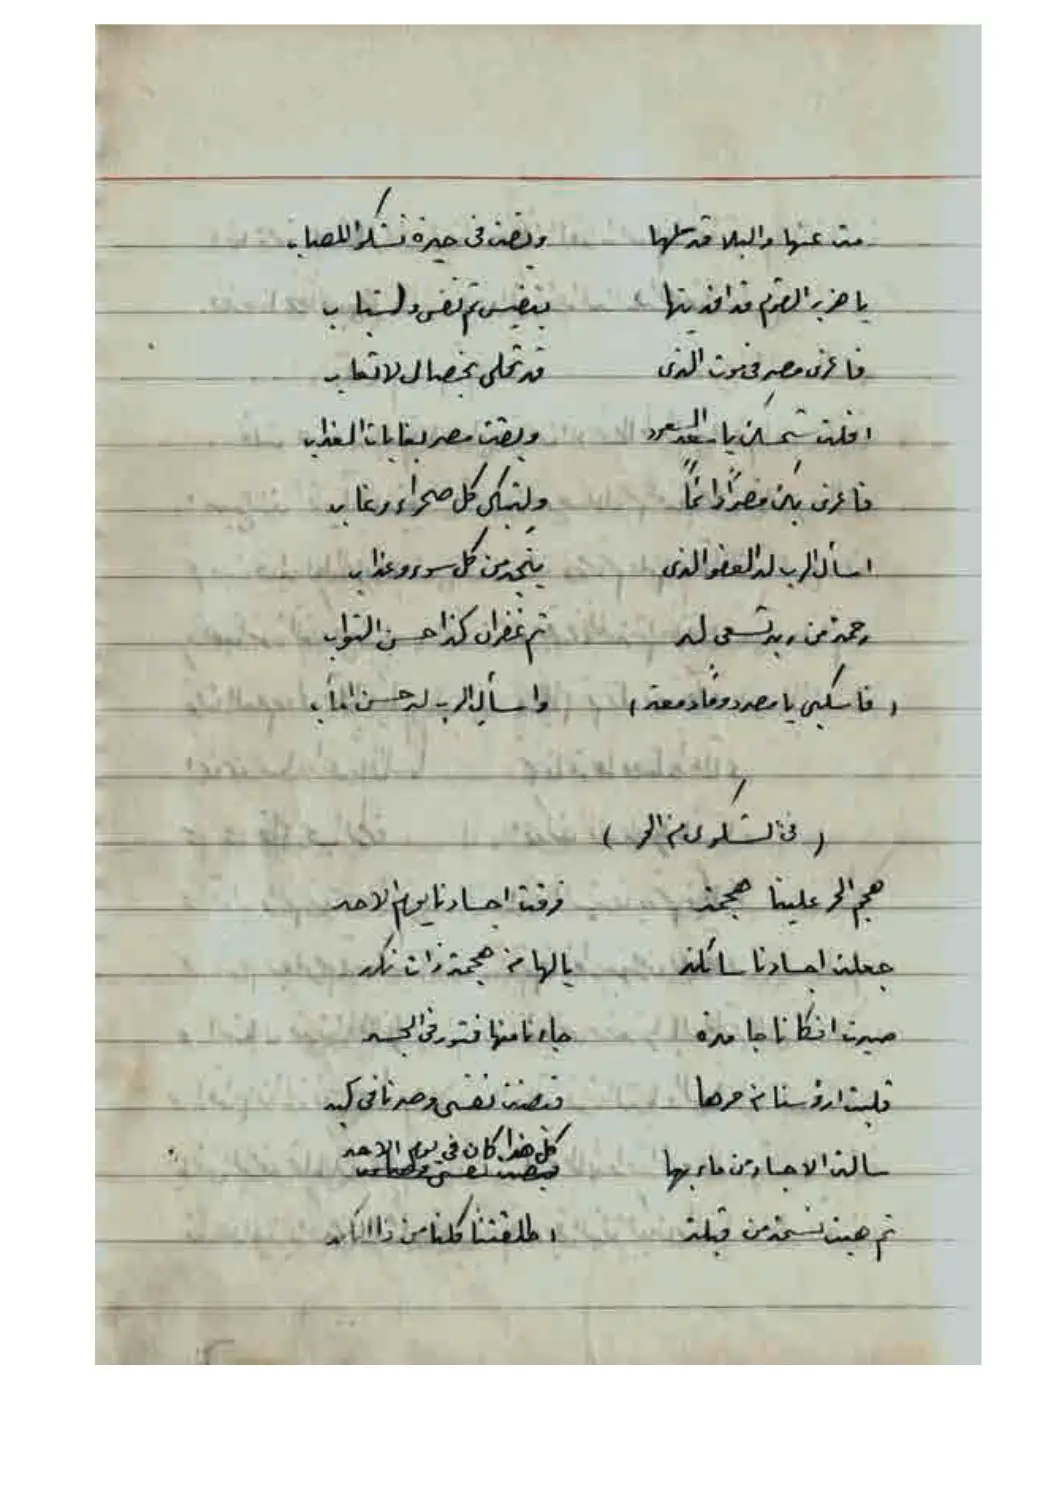 مت عنها والبلا قد سلها وبقت في حيرة تشكو اللصياب
يا هزبر القوم قد افديتها بنفيس ثم نفس
فاعزى مصر في موت الذي قد تحلى بخصال لا تعاب
افلت شمسك يا سعد السعود وبقت مصر بغايات العذاب
فاعزى دائماً ولتبكى كل صحراء وغاب
اسأل الرب له العفو الذي ينجه من كل سوء وعذاب
رحمة من ربه تسعى له ثم غفران كذا حسن الثواب
( فاسكبى يا مصر دوماً دمعة ) واسألى الرب له حسن المأب
( في الشكوى من الحر )
هجم الحر علينا هجمة فرقت اجسادنا يوم الاحد
جعلت اجسادنا سائلة يالها من هجمة ذات نكد
صيرت افكانا جامدة جاءنا منها فتور في الجسد
قلبت ارؤسنا من حرها فبضت نفسى وصرنا فى كبد
سالت الاجساد من ماء بها كل هذا كان في يوم الاحد
ثم هبت نسمة من قبلة اطلقتنا كلنا من ذا النكد